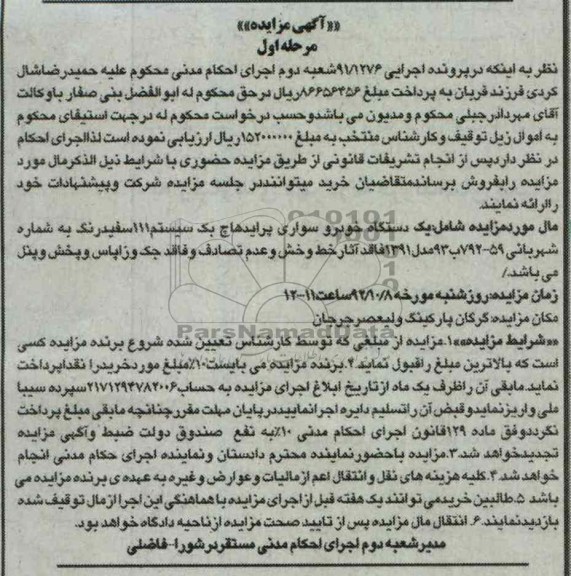 ««آگهی مزایده»»
مرحله اول
نظر به اینکه درپرونده اجرایی ۹۱/۱۲۷۶شعبه دوم اجرای احکام مدنی محکوم علیه حمیدرضاشال
کردی فرزند قربان به پرداخت مبلغ ۸۶۶۵۶۴۵۶ریال درحق محکوم له ابوالفضل بنی صفار باوکالت
آقای مهردادرجبلی محکوم ومدیون می باشدوحسب درخواست محکوم له درجهت استیفای محکوم
به اموال زیل توقیف وکارشناس منتخب به مبلغ ۱۵۲۰۰۰۰۰۰ریال ارزیابی نموده است لذااجرای احکام
در نظر داردپس از انجام تشریفات قانونی از طریق مزایده حضوری با شرایط ذیل الذکرمال مورد
مزایده رابفروش برساندمتقاضیان خرید میتواننددر جلسه مزایده شرکت وپیشنهادات خود
راارائه نمایند.
مال موردمزایده شامل:یک دستگاه خودرو سواری پرایدهاچ بک سیستم۱۱۱سفیدرنگ به شماره
شهربانی ۵۹-۷۹۲ب۹۳مدل۱۳۹۱فاقد آثارخط وخش وعدم تصادف وفاقد جک وزاپاس وپخش وپنل
می باشد./
زمان مزایده:روزشنبه مورخه ۹۲/۱۰/۸ساعت۱۱-۱۲
مکان مزایده:گرگان پارکینگ ولیعصرجرجان
««شرایط مزایده»»۱.مزایده از مبلغی که توسط کارشناس تعیین شده شروع برنده مزایده کسی
است که بالاترین مبلغ راقبول نماید.۲.برنده مزایده می بایست۱۰٪مبلغ موردخریدرا نقداپرداخت
نماید.مابقی آن راظرف یک ماه ازتاریخ ابلاغ اجرای مزایده به حساب۲۱۷۱۲۹۴۷۸۲۰۰۶سپرده سیبا
ملی واریزنمایدوقبض آن راتسلیم دایره اجرانماییددرپایان مهلت مقررچنانچه مابقی مبلغ پرداخت
نگرددوفق ماده ۱۲۹قانون اجرای احکام مدنی ۱۰٪به نفع صندوق دولت ضبط وآگهی مزایده
تجدیدخواهد شد.۳.مزایده باحضورنماینده محترم دادستان ونماینده اجرای حکام مدنی انجام
خواهد شد.۴.کلیه هزینه های نقل وانتقال اعم ازمالیات وعوارض وغیره به عهده ی برنده مزایده می
باشد ۵.طالبین خریدمی توانند یک هفته قبل ازاجرای مزایده باهماهنگی این اجرا ازمال توقیف شده
بازدیدنمایند.۶. انتقال مال مزایده پس از تایید صحت مزایده ازناحیه دادگاه خواهد بود.
مدیرشعبه دوم اجرای احکام مدنی مستقردرشورا-فاضلی
ParsNamadData